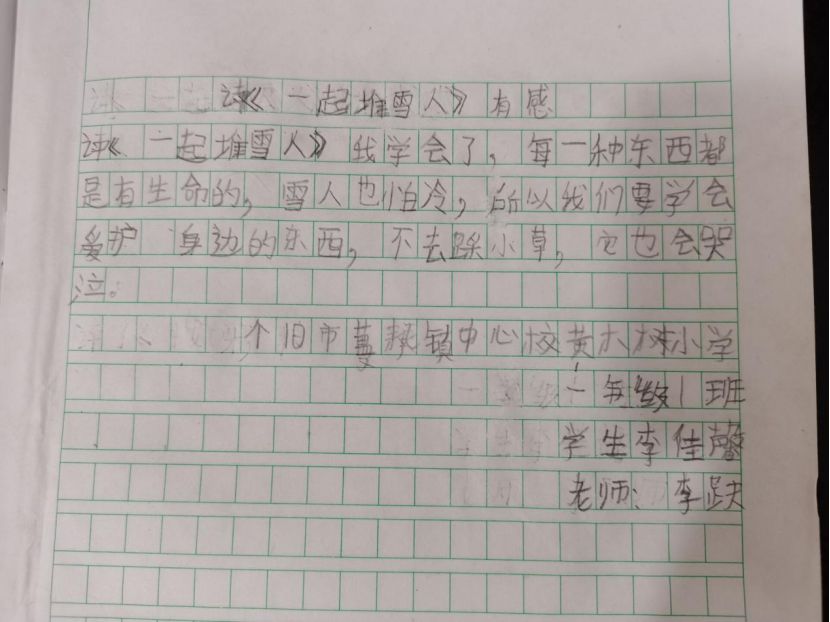 读《一起堆雪人》有感
读《一起堆雪人》我学会了，每一种东西都
是有生命的，雪人也怕冷，所以我们要学会
爱护 身边的东西，不去踩小草，它也会哭
泣。
个旧市蔓耗镇中心校黄木树小学
一年级1班
学生李佳馨
老师：李跃